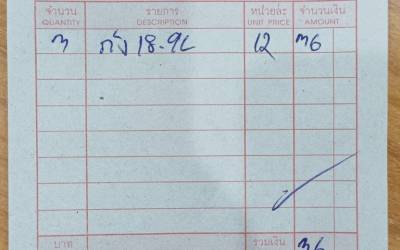 จำนวน รายการ หน่วยละ จำนวนเงิน
QUANTITY DESCRIPTION UNIT PRICE AMOUNT
๓ ถัง 18.9L 12 ๓6
บาท รวมเงิน ๓6